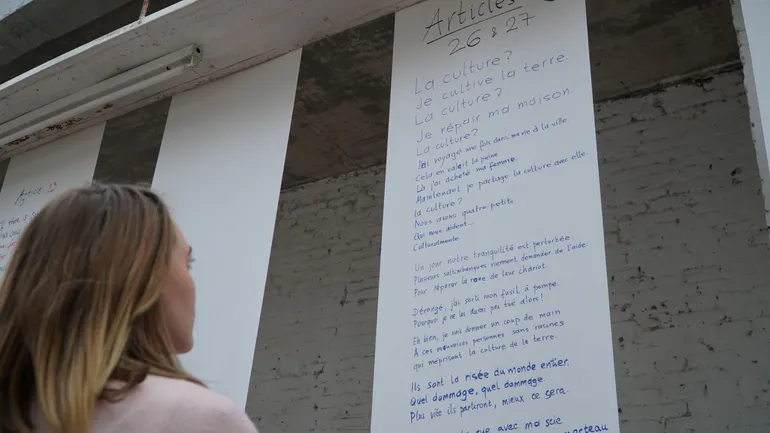 Article 23
Articles
26 & 27
La culture?
Je cultive la terre
La culture?
Je répair ma maison
La culture?
J'ai voyagé une fois dans ma vie à la ville,
Cela en valait la peine
Là j'ai acheté ma femme.
Maintenant je partage la culture avec elle
La culture?
Nous avons quatre petits
Qui nous aident...
Culturalmente.
Un jour notre tranquilité est perturbée
Plusieurs saltimbanques viennent demander de l'aide
Pour réparer la roue de leur chariot.
Dérangé, j'ai sorti mon fusil à pompe.
Pourquoi je ne les aurai pas tué alors!
Eh bien, je vais donner un coup de main
À ces mauvaises personnes sans racines
qui méprisent la culture de la terre.
Ils sont la risée du monde entier.
Quel dommage, quel dommage.
Plus vite ils partiront, mieux ce sera.
avec ma scie
marteau